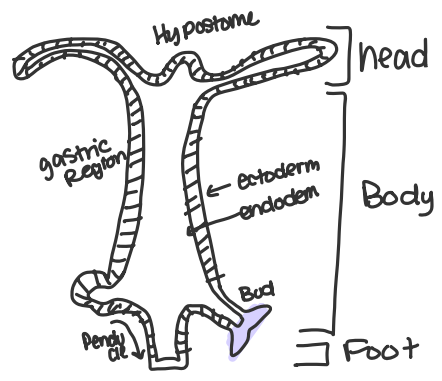 Hypostome
head
gastric
Region
ectoderm
endodem
Body
Bud
Pendu
cle
Foot